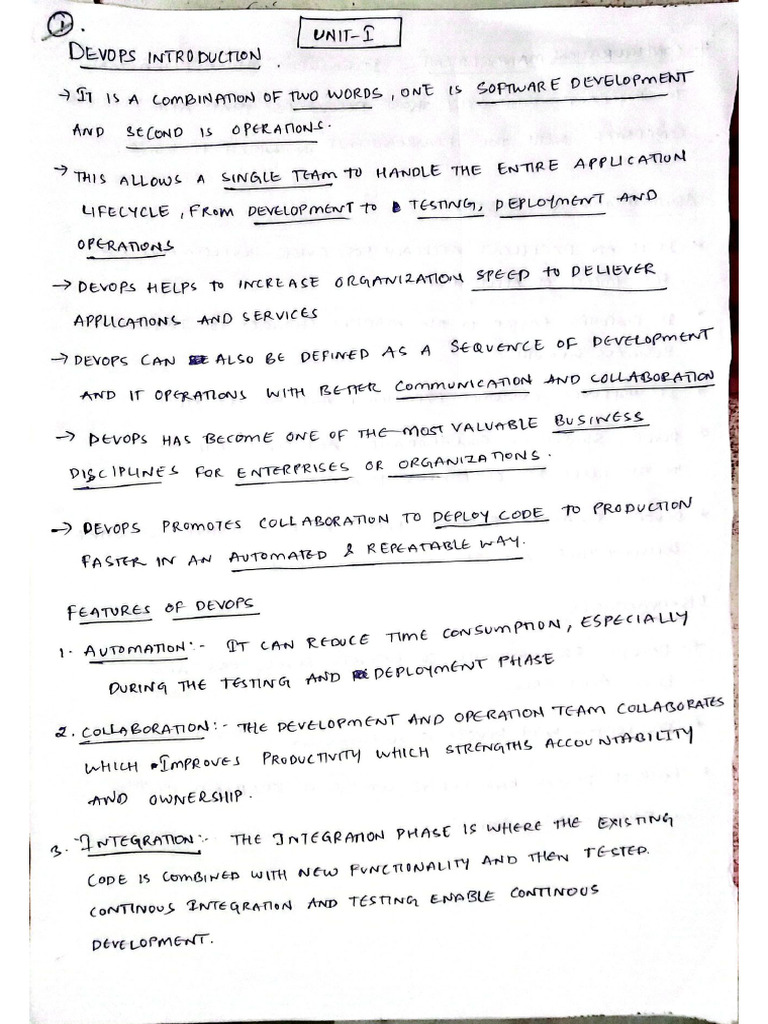 1.
UNIT-I
DEVOPS INTRODUCTION.
→ IT IS A COMBINATION OF TWO WORDS, ONE IS SOFTWARE DEVELOPMENT
AND SECOND IS OPERATIONS.
→ THIS ALLOWS A SINGLE TEAM TO HANDLE THE ENTIRE APPLICATION
LIFECYCLE, FROM DEVELOPMENT TO TESTING, DEPLOYMENT AND
OPERATIONS
→ DEVOPS HELPS TO INCREASE ORGANIZATION SPEED TO DELIEVER
APPLICATIONS AND SERVICES
→ DEVOPS CAN ALSO BE DEFINED AS A SEQUENCE OF DEVELOPMENT
AND IT OPERATIONS WITH BETTER COMMUNICATION AND COLLABORATION
→ DEVOPS HAS BECOME ONE OF THE MOST VALUABLE BUSINESS
DISCIPLINES FOR ENTERPRISES OR ORGANIZATIONS.
→ DEVOPS PROMOTES COLLABORATION TO DEPLOY CODE TO PRODUCTION
FASTER IN AN AUTOMATED & REPEATABLE WAY.
FEATURES OF DEVOPS
1. AUTOMATION:- IT CAN REDUCE TIME CONSUMPTION, ESPECIALLY
DURING THE TESTING AND DEPLOYMENT PHASE
2. COLLABORATION:- THE DEVELOPMENT AND OPERATION TEAM COLLABORATES
WHICH IMPROVES PRODUCTIVITY WHICH STRENGTHS ACCOUNTABILITY
AND OWNERSHIP.
3. INTEGRATION:- THE INTEGRATION PHASE IS WHERE THE EXISTING
CODE IS COMBINED WITH NEW FUNCTIONALITY AND THEN TESTED.
CONTINOUS INTEGRATION AND TESTING ENABLE CONTINOUS
DEVELOPMENT.